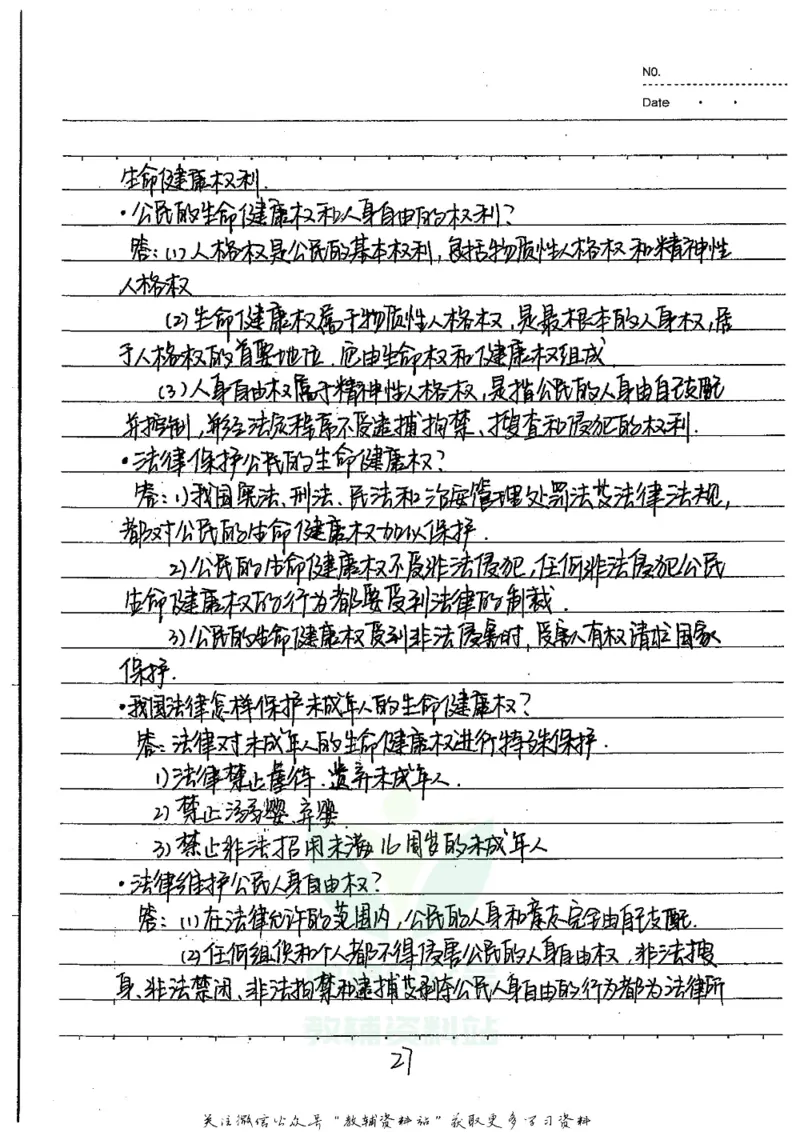 NO.
Date
生命健康权利.
·公民的生命健康权和人身自由的权利?
答:(1)人格权是公民的基本权利,包括物质性人格权和精神性
人格权
(2)生命健康权属于物质性人格权,是最根本的人身权,居
于人格权的首要地位.它由生命权和健康权组成.
(3)人身自由权属于精神性人格权,是指公民的人身由自己支配
并控制,非经法定程序不受逮捕拘禁、搜查和侵犯的权利.
·法律保护公民的生命健康权?
答:1)我国宪法、刑法、民法和治安管理处罚法及法律法规,
都对公民的生命健康权加以保护.
2)公民的生命健康权不受非法侵犯,任何非法侵犯公民
生命健康权的行为都要受到法律的制裁.
3)公民的生命健康权受到非法侵害时,受害人有权请求国家
保护.
·我国法律怎样保护未成年人的生命健康权?
答:法律对未成年人的生命健康权进行特殊保护.
1)法律禁止虐待.遗弃未成年人.
2)禁止溺婴.弃婴
3)禁止非法招用未满16周岁的未成年人
·法律维护公民人身自由权?
答:(1)在法律允许的范围内,公民的人身和意志完全由自己支配.
(2)任何组织和个人都不得侵害公民的人身自由权,非法搜
身、非法禁闭、非法拘禁和逮捕及剥夺公民人身自由的行为都为法律所
教辅资料站
27
关注微信公众号"教辅资料站"获取更多学习资料